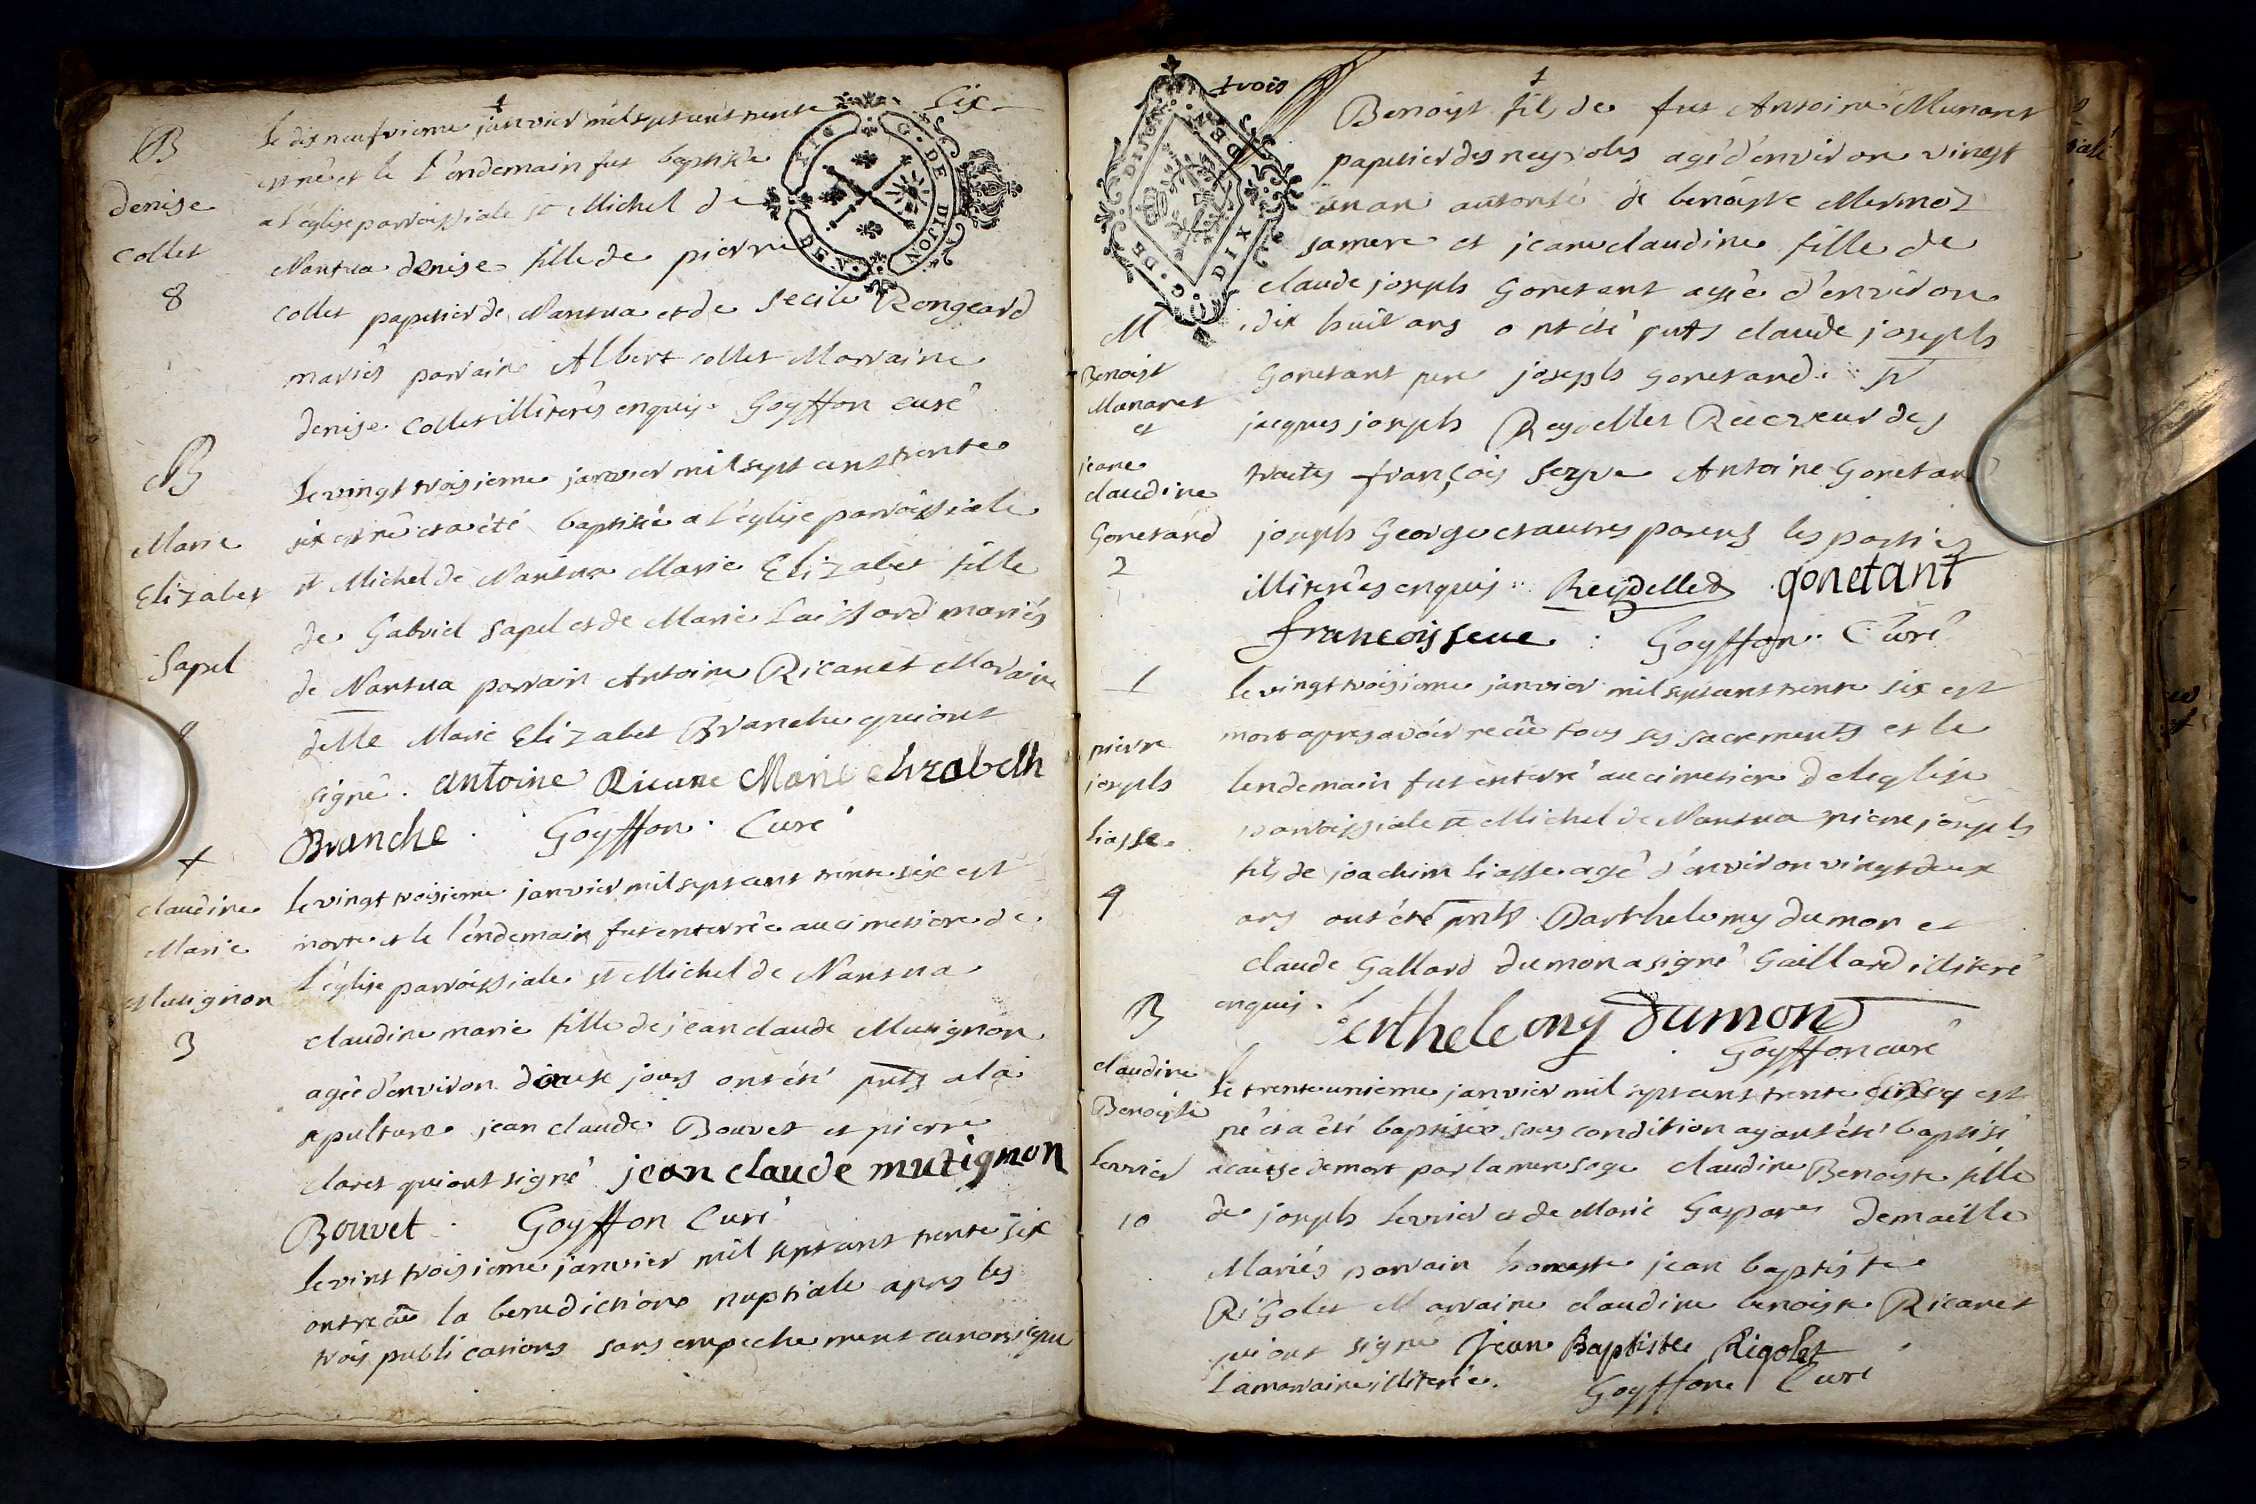 B
denise
collet
8
le dix neufvieme janvier mil sept cent trente six
est né et le l'endemain fut baptisée
a l'église parroissiale st Michel de
Nantua denise fille de pierre
collet papetier de Nantua et de Secile Rongeard
mariés parrain Albert collet Marraine
denise collet illiterés enquis. Goyffon curé
B
Marie
Elizabet
Sapel
9
Le vingt troisieme janvier mil sept cent trente
six est né et a été baptisée a l'église parroissiale
st Michel de Nantua Marie Elizabet fille
de Gabriel Sapel et de Marie mariés
de Nantua parrain Antoine Ricanet Marraine
delle Marie Elizabet Branche qui ont
signé. antoine Ricane Marie elizabelh
Branche. Goyffon. Curé
claudine
Marie
Mutignon
3
Le vingt troisieme janvier mil sept cent trente six est
morte et le l'endemain fut enterrée au cimetiere de
l'église parroissiale st Michel de Nantua
claudine marie fille de jean claude Mutignon
agée d'environ jours ont été pnts a la
sepulture jean claude Bouvet et pierre
claret qui ont signé jean claude mutignon
Bouvet. Goyffon Curé
Le vint troisieme janvier mil sept cent trente six
ont recû la benediction nuptiale apres les
trois publications sans empechement canonique
G. DE DIJON
trois
G. DE DIJON DIX DEN
M
Benoist
Munaret
et
jeane
claudine
Gonetand
2
Benoist fils de fut Antoine Munaret
papetier des neyroles agé d'environ vingt
un an autorisé de benoiste Mermoz
sa mere et jeane claudine fille de
claude joseph Gonetant agée d'environ
dix huit ans ont été pnts claude joseph
Gonetant pere joseph Gonetand
jacques joseph Reydellet Receveur des
traites françois Seyve Antoine Gonetand
joseph George et autres parens les parties
illiterées enquis. Reydellet gonetant
francois seve. Goyffon. Curé
pierre
joseph
liasse
4
Le vingt troisieme janvier mil sept cent trente six est
mort apres avoir recû tous ses sacrements et le
lendemain fut enterré au cimetiere de l'eglise
parroissiale st Michel de Nantua pierre joseph
fils de joachim Liasse agé d'environ vingt deux
ans ont été pnts Barthelemy dumon et
claude Gallard dumon a signé Gaillard illiteré
enquis. berthelemy dumon
Goyffon curé
B
claudine
Benoiste
Levrier
10
Le trente unieme janvier mil sept cent trente six est
né et a été baptisée sous condition ayant été baptisé
a cause de mort par la mere sage claudine Benoiste fille
de joseph Levrier et de Marie Gaspare demaille
Mariés parrain honeste jean baptiste
Rigolet Marraine claudine benoiste Ricanet
qui ont signé Jean Baptiste Rigolet
La marraine illiterée. Goyffon Curé